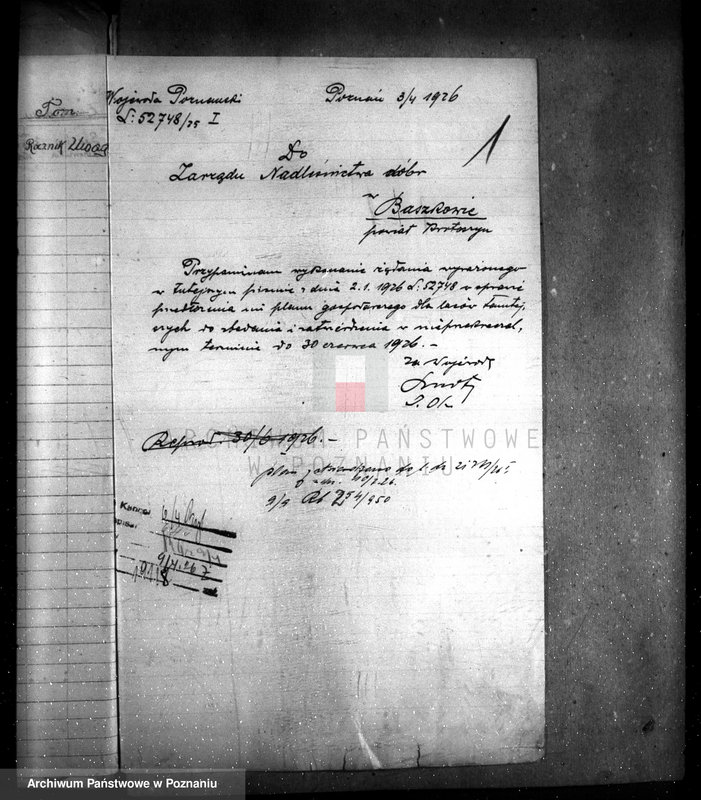 Tom.
Rocznik Uwag
Wojewoda Poznański
L: 52748/25 I
Poznań 3/4 1926
1
Do
Zarządu Nadleśnictwa dóbr
w
Baszkowie
powiat Krotoszyn
Przypominam wykonanie żądania wyrażonego
w tutejszym piśmie z dnia 2.1.1926 L: 52748 w sprawie
przedłożenia mi planu gospodarczego dla lasów tamtej,
szych do zbadania i zatwierdzenia w nieprzekraczal,
nym terminie do 30 czerwca 1926. –
Za Wojewodę
ARCHIWUM PAŃSTWOWE
W POZNANIU
30/6 1926. –
plan zatwierdzono
9/3
254/950
9/4 26
Archiwum Państwowe w Poznaniu